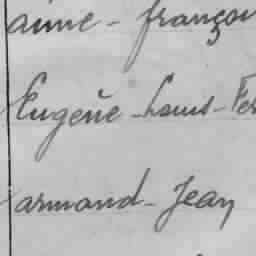 anne - françoi
Eugène - Louis - Fer
armand - Jean